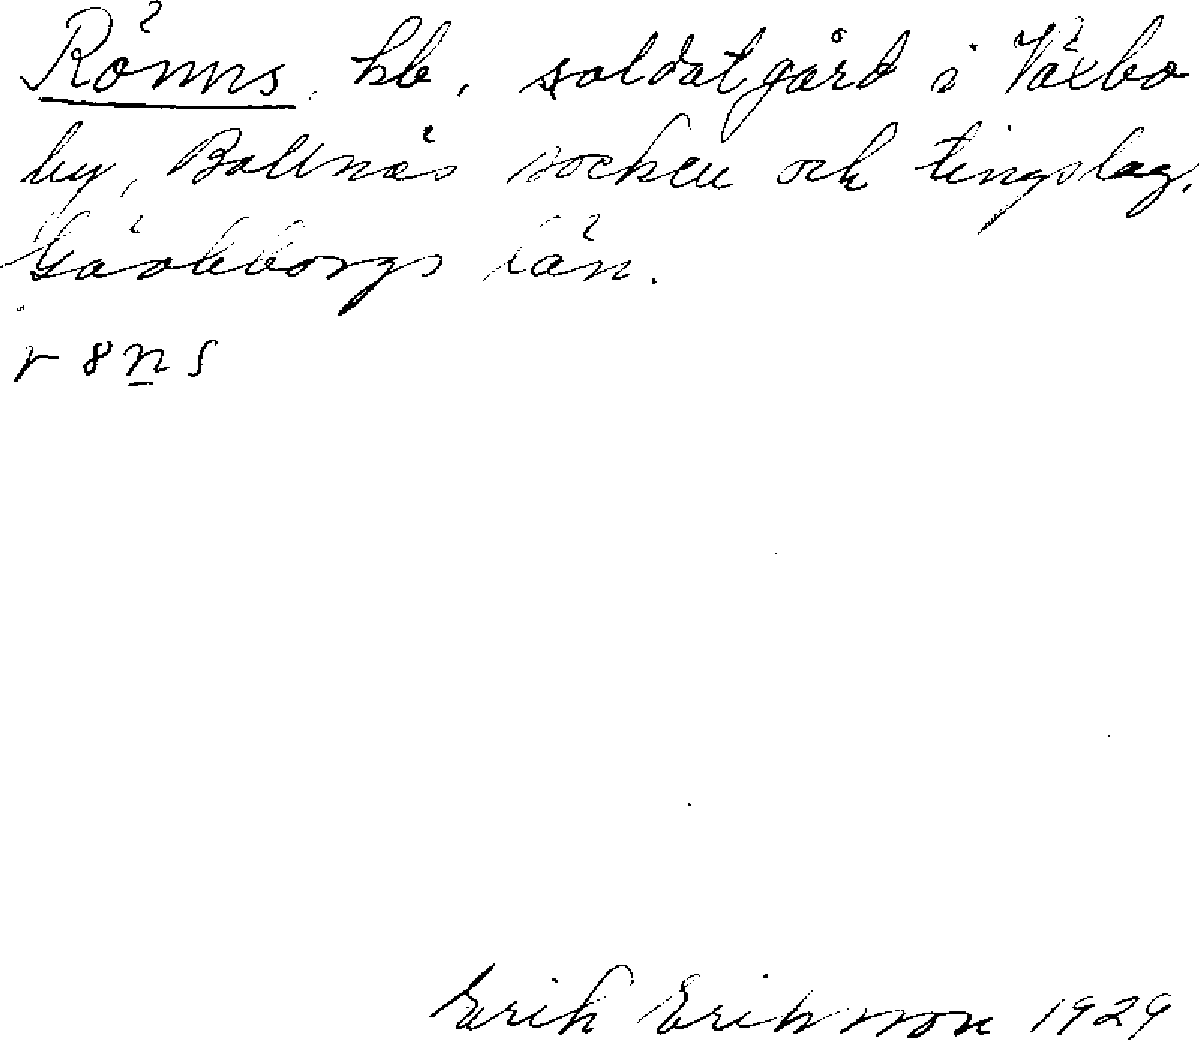 Rönns, hb, soldatgård i Växbo
by, Bollnäs socken och tingslag,
Gävleborgs län.
r8n̲s
Erik Eriksson 1929